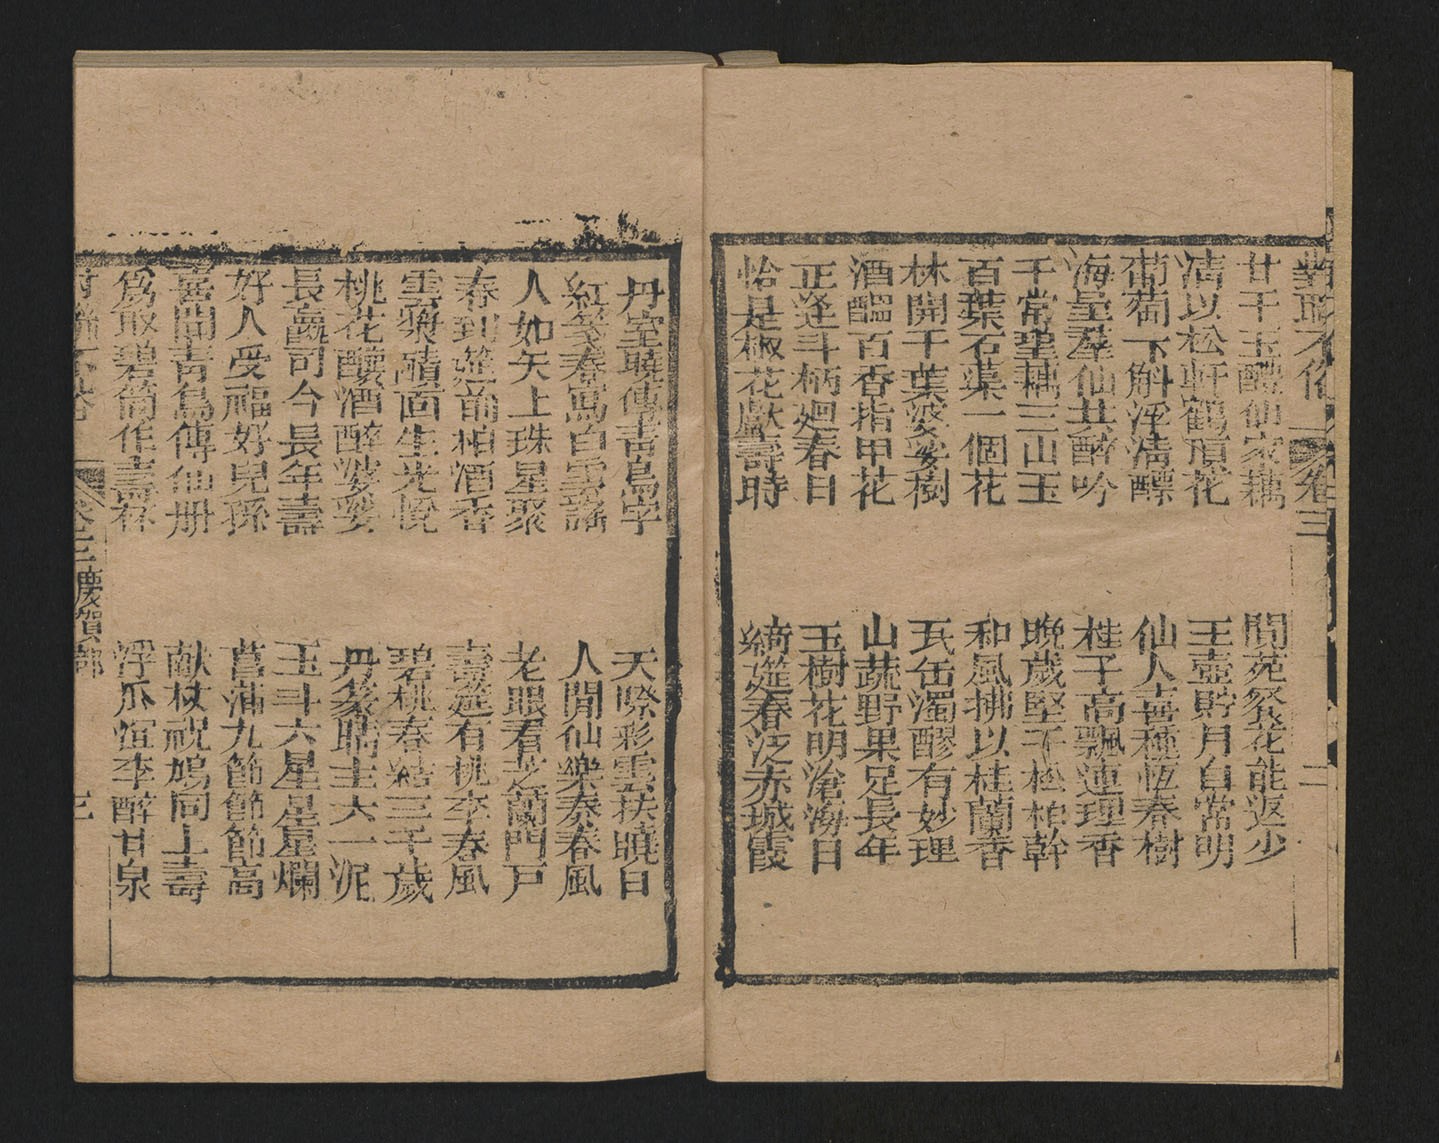 對聯不俗 卷三 二
廿干玉醴仙家藕 閬苑餐花能返少
清以松軒鶴頂花 玉壺貯月自常明
葡萄下斛浮清醥 仙人喜種恆春樹
海呈羣仙共醉吟 桂子高飄連理香
千常望耦三山玉 晚歲堅于松柏幹
百葉石蕖一個花 和風拂以桂蘭香
林開干葉婆娑樹 瓦缶濁醪有妙理
酒醞百香指甲花 山蔬野果足長年
正逢斗柄廻春日 玉樹花明滄海日
恰是椒花獻壽時 綺筵春泛赤城霞
丹室曉傳青鳥字 天際彩雲扶曉日
紅箋春寫白雪謠 人間仙樂奏春風
人如矢上珠星聚 老眼看芝蘭門戸
春到筵前柏酒香 壽筵有桃李春風
雲漿醆面生光悅 碧桃春結三千歲
桃花釀酒醉婆娑 丹篆貼主六一泥
長齡司今長年壽 玉斗六星星星爛
好人受福好兒孫 菖蒲九節節節高
喜聞青鳥傳仙册 献杖祝鳩同上壽
爲取碧筒作壽杯 浮瓜沉李醉甘泉
對聯不俗 卷三 慶賀部 三